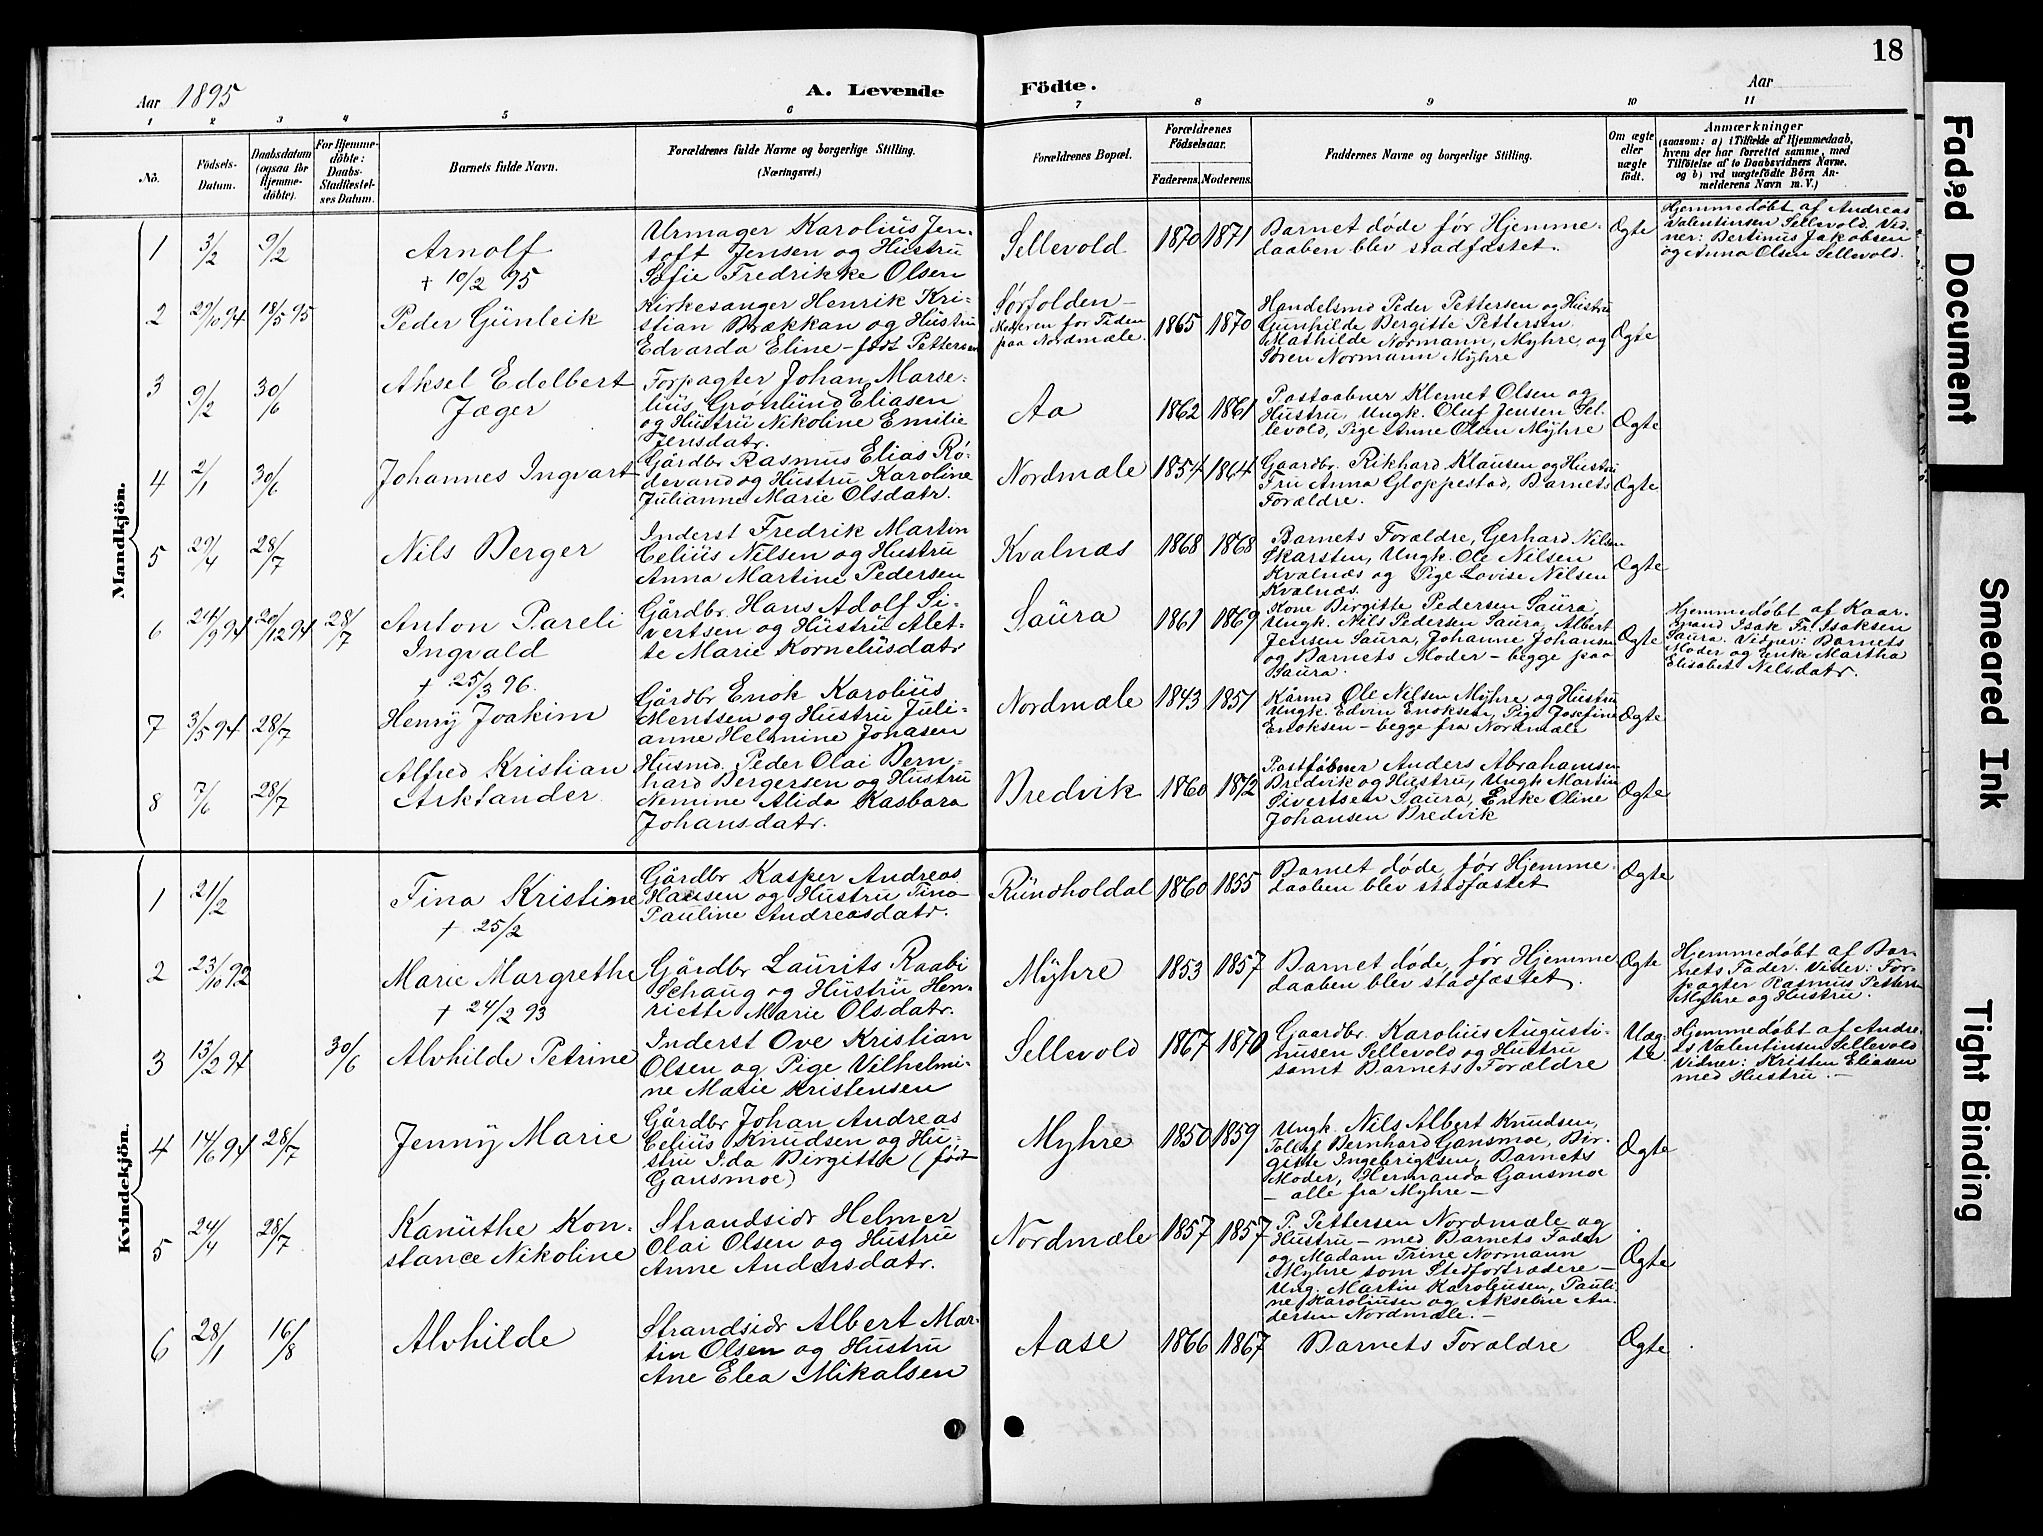 18
Aar 1895
A. Levende Födte.
Aar
1 2 3 4 5 6 7 8 9 10 11
No.
Födsels-
Datum.
Daabsdatum
(ogsaa for
Hjemme-
döbte).
For Hjemme-
döbte:
Daabs-
Stadfæstel-
ses Datum.
Barnets fulde Navn.
Forældrenes fulde Navne og borgerlige Stilling.
(Næringsvei.)
Forældrenes Bopæl.
Forældrenes
Födselsaar.
Faderens. Moderens.
Faddernes Navne og borgerlige Stilling.
Om ægte
eller
uægte
födt.
Anmærkninger
(saasom: a) i Tilfælde af Hjemmedaab,
hvem der har forrettet samme, med
Tilföielse af to Daabsvidners Navne.
og b) ved uægtefödte Börn An-
melderens Navn m. V.)
Mandkjön.
1
3/2
9/2
Arnolf
+ 10/2 95
Urmager Karolius Jen-
toft Jensen og Hustru
Sofie Fredrikke Olsen
Sellevold
1870 1871
Barnet døde før Hjemme-
daaben blev stadfæstet.
Ægte
Hjemmedøbt af Andreas
Valentinsen Sellevold. Vid-
ner: Bertinus Jakobsen
og Anna Olsen Sellevold.
2
29/10 94
18/5 95
Peder Günleik
Kirkesanger Henrik Kri-
stian Brækkan og Hustru
Edvarda Eline - født Pettersen
Sørfolden -
Moderen for Tiden
paa Nordmæle.
1865 1870
Handelsmd Peder Pettersen og Hustru
Gunhilde Bergitte Pettersen
Mathilde Normann, Myhre, og
Søren Normann Myhre
Ægte
3
9/2
30/6
Aksel Edelbert
Jæger
Forpagter Johan Marse-
lius Grønlund Eliasen
og Hustru Nikoline Emilie
Jensdatr.
Aa
1862 1861
Postaabner Klemet Olsen og
Hustru, Ungk. Oluf Jensen Sel-
levold, Pige Anne Olsen Myhre
Ægte
4
2/1
30/6
Johannes Ingvart
Gårdbr Rasmus Elias Rø-
devand og Hustru Karoline
Julianne Marie Olsdatr.
Nordmæle
1854 1864
Gaardbr. Rikhard Klausen og Hustru
Fru Anna Gloppestad, Barnets
Forældre.
Ægte
5
29/4
28/7
Nils Berger
Inderst Fredrik Martin
Celius Nilsen og Hustru
Anna Martine Pedersen
Kvalnæs
1868 1868
Barnets Forældre, Gerhard Nilsen
Skarsten, Ungk. Ole Nilsen
Kvalnæs og Pige Lovise Nilsen
Kvalnæs.
Ægte
6
24/9 94
20/12 94
28/7
Anton Pareli
Ingvald
+ 25/3 96.
Gårdbr. Hans Adolf Si-
vertsen og Hustru Alet-
te Marie Kornelüsdatr
Saura
1861 1869
Kone Birgitte Pedersen Saura,
Ungk. Nils Pedersen Saura, Albert
Jensen Saura, Johanne Johansen
og Barnets Moder - begge paa
Saura.
Ægte
Hjemmedøbt af Kaar-
mand Isak Fr. Isaksen
Saura. Vidner: Barnets
Moder og Enke Martha
Elisabet Nilsdatr.
7
3/5 94
28/7
Henry Joakim
Gårdbr Enok Karolius
Mentsen og Hustru Juli-
anne Helmine Jonasen
Nordmæle
1843 1851
Kårmd Ole Nilsen Myhre og Hustru
Ungk. Edvin Enoksen, Pige Josefine
Enoksen - begge fra Nordmæle
Ægte
8
7/6
28/7
Alfred Kristian
Arktander
Husmd. Peder Olai Bern-
hard Bergersen og Hustru
Nemine Alida Kasbara
Johansdatr.
Bredvik
1860 1872
Anders Abrahamsen
Bredvik og Hustru, Ungk Martin
Sivertsen Saura, Enke Oline
Johansen Bredvik
Ægte
Kvindekjön.
1
21/2
Tina Kristine
+ 25/2
Gårdbr Kasper Andreas
Hansen og Hustru Tina
Pauline Andreasdatr.
Rundholdal
1860 1855
Barnet døde før Hjemme-
daaben blev stadfæstet
Ægte
2
23/10 92
Marie Margrethe
+ 24/2 93
Gårdbr Laurits Raabi
Schaug og Hustru Hen-
riette Marie Olsdatr.
Myhre
1853 1857
Barnet døde før Hjemme
daaben blev stadfæstet.
Ægte
Hjemmedøbt af Bar-
nets Fader. Vidner: For-
pagter Rasmus Pettersen
Myhre og Hustru.
3
13/2 94
30/6
Alvhilde Petrine
Inderst Ove Kristian
Olsen og Pige Vilhelmi-
ne Marie Kristensen
Sellevold
1867 1870
Gaardbr. Karolius Augusti-
nusen Sellevold og Hustru
samt Barnets Forældre
Uæg-
te.
Hjemmedøbt af Andre-
as Valentinsen Sellevold
Vidner: Kristen Eliasen
med Hustru. -
4
14/6 94
28/7
Jenny Marie
Gårdbr Johan Andreas
Celius Knudsen og Hu-
stru Ida Birgitte (født
Gansmoe)
Myhre
1850 1859
Ungk. Nils Albert Knudsen,
Tollef Bernhard Gansmoe, Bir-
gitte Ingebrigtsen, Barnets
Moder, Hermanda Gansmoe
- alle fra Myhre -
Ægte
5
24/4
28/7
Kanuthe Kon-
stance Nikoline
Strandsidr Helmer
Olai Olsen og Hustru
Anne Andersdatr.
Nordmæle
1857 1857
P. Pettersen Nordmæle og
Hustru - med Barnets Fader
og Madam Trine Normann
Myhre som Stedfortrædere -
Ung. Martin Karoliusen, Pauli-
ne Karoliusen og Akseline An-
dersen Nordmæle. -
Ægte
6
28/1
16/8
Alvhilde
Strandsidr Albert Mar-
tin Olsen og Hustru
Ane Elea Mikalsen
Aase
1866 1867
Barnets Forældre
Ægte
Faded Document
Smeared Ink
Tight Binding